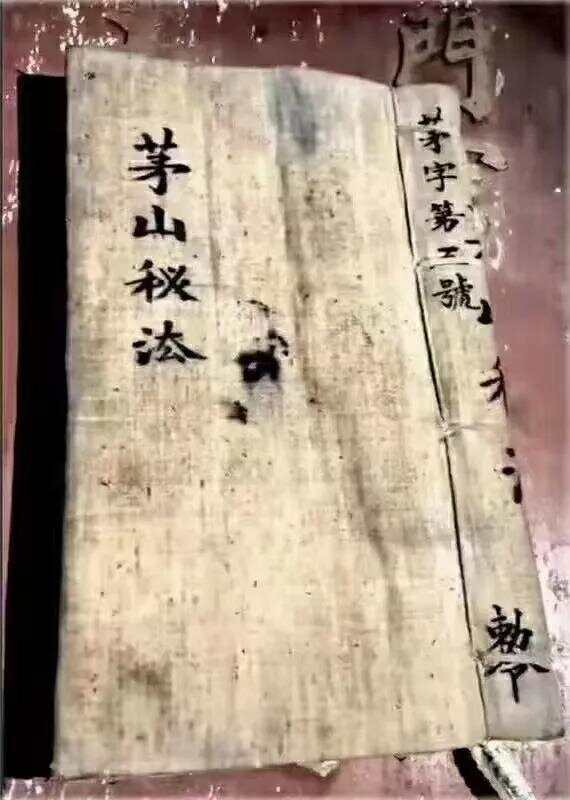 茅山秘法
茅字第三號
勅令
門